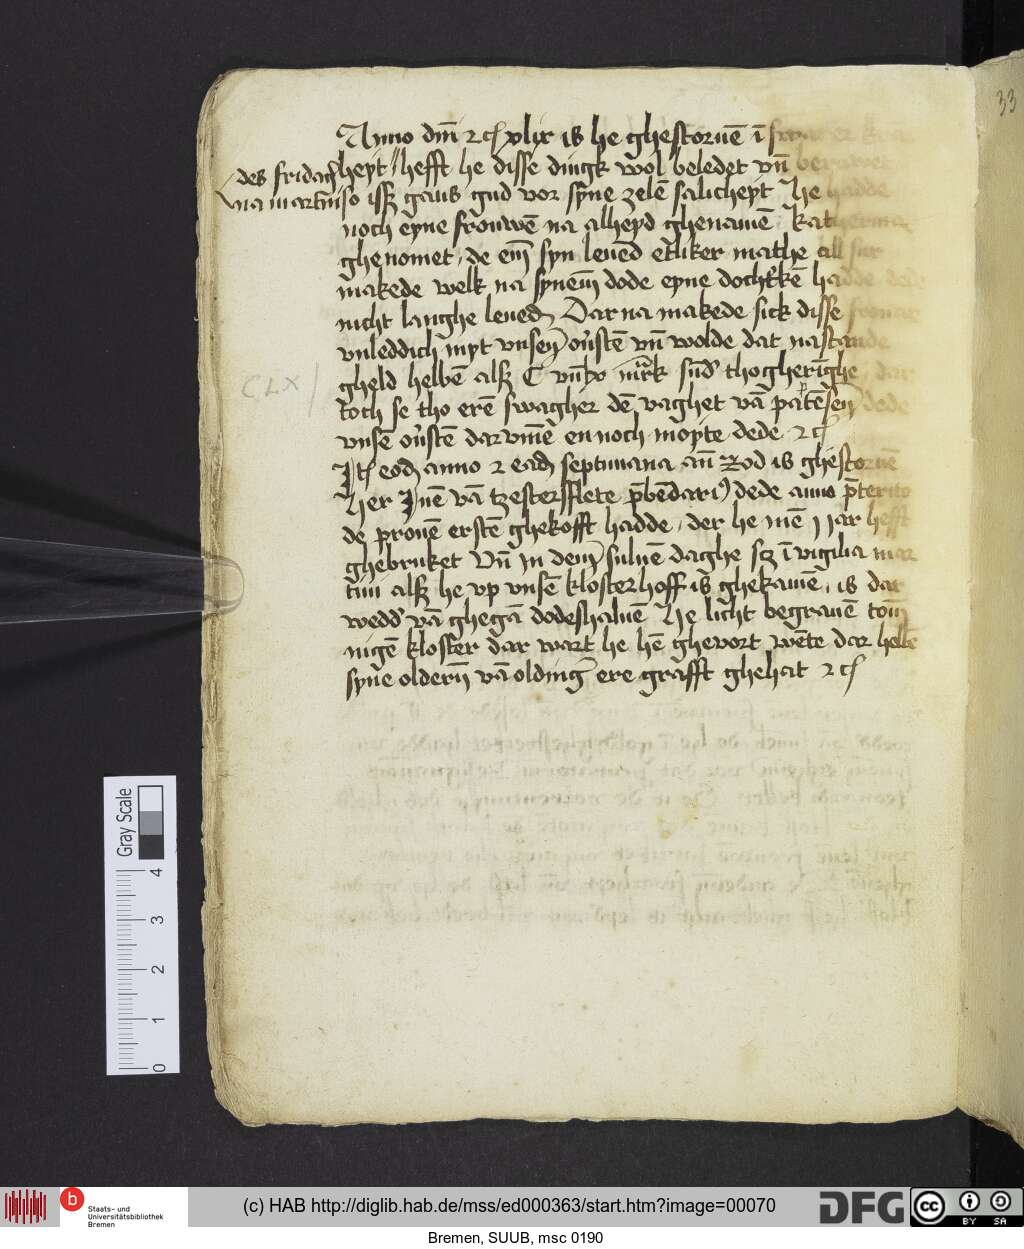 33
Anno dm̄ ⁊c̄ xlix is he ghestoruē ī
des fridag̃ heyt hefft he disse dingk wol beledet vn̄
na martinso isß gans gud vor syne zelē salicheyt He hadde
noch eyne frouwē na alheyd ghenamē. Katherina
ghenomet, de em̄ syn leuend etliker mathe all sur
makede welk na synem̄ dode eyne docht'kē hadde
nicht langhe leuede Dar na makede sick disse frouwe
vnleddich myt vnsen ou'stē vn̄ wolde dat nastande
gheld hebbē alsß C vn̄ lx mark sūd' thogherīghe, dar
CLX
toch se tho erē swagher dē vaghet vā patēsen dede
vnsē ou'stē dar vmē en noch moyte dede ⁊c̄
Itē eodē anno ⁊ eadē septimana an̄ god is ghestoruē
Her vā tzestersflete p̄bēdari9 dede anno p̄terito
de prouē erstē ghekofft hadde, der he mē 1 jar hefft
ghebruket Vn̄ in dem suluē daghe scz ī vigilia mar
tini alsß he vp vnsē klosterhoff is ghekamē, is dar
wedd' vā ghegā dodeshaluē He licht begrauē tom̄
nigē kloster dar wart he hē ghevort wēte dar hebbē
syne oldern vā olding' ere grafft ghehat ⁊c̄
Gray Scale
4
3
2
1
0
b
Staats- und
Universitätsbibliothek
Bremen
(c) HAB http://diglib.hab.de/mss/ed000363/start.htm?image=00070
DFG
cc
BY SA
Bremen, SUUB, msc 0190